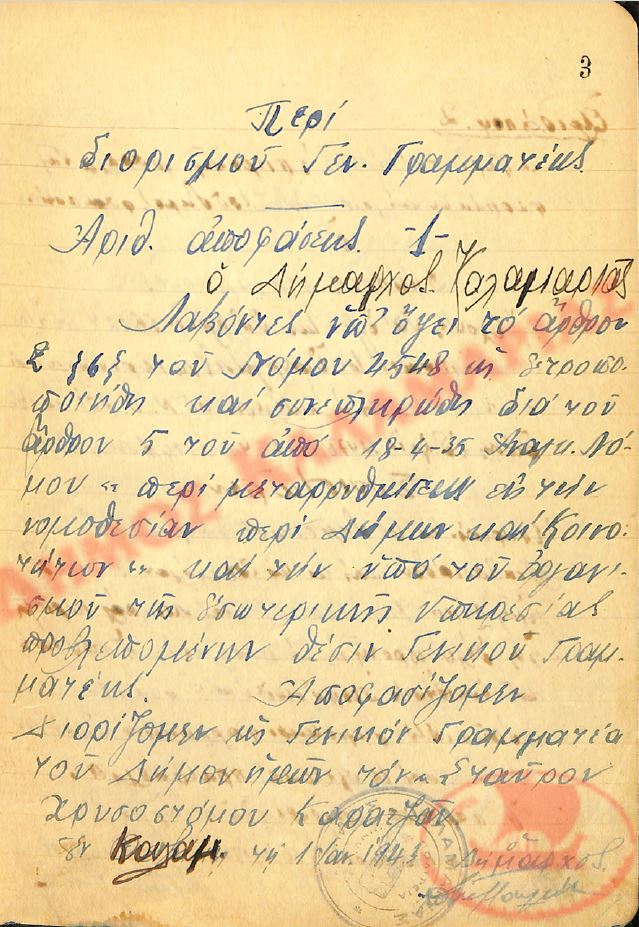 3
Περί
διορισμού Γεν. Γραμματέως
Αριθ. αποφάσεως -1-
ὁ Δήμαρχος Καλαμαριάς
Λαβόντες ὑπ' όψει τό ἄρθρον
του Νόμου 4548 ως ετροπο
ποιήθη καί συνεπληρώθη διά του
ἄρθρου 5 του από 18-4-35 Αναγκ. Νό-
μου "περί μεταρρυθμίσεως εις την
νομοθεσίαν περί Δήμων καί Κοινο-
τήτων" καί την υπό του οργανι-
σμού της εσωτερικής υπηρεσίας
προβλεπομένην θέσιν Γενικού Γραμ-
ματέως. Αποφασίζομεν
Διορίζομεν ως Γενικόν Γραμματέα
του Δήμου ημών τόν Σταύρον
Χρυσοστόμου
εν Καλαμ. τη 1 Ιαν. 194
Δήμαρχος
ΔΗΜΟΣ ΚΑΛΑΜΑΡΙΑΣ